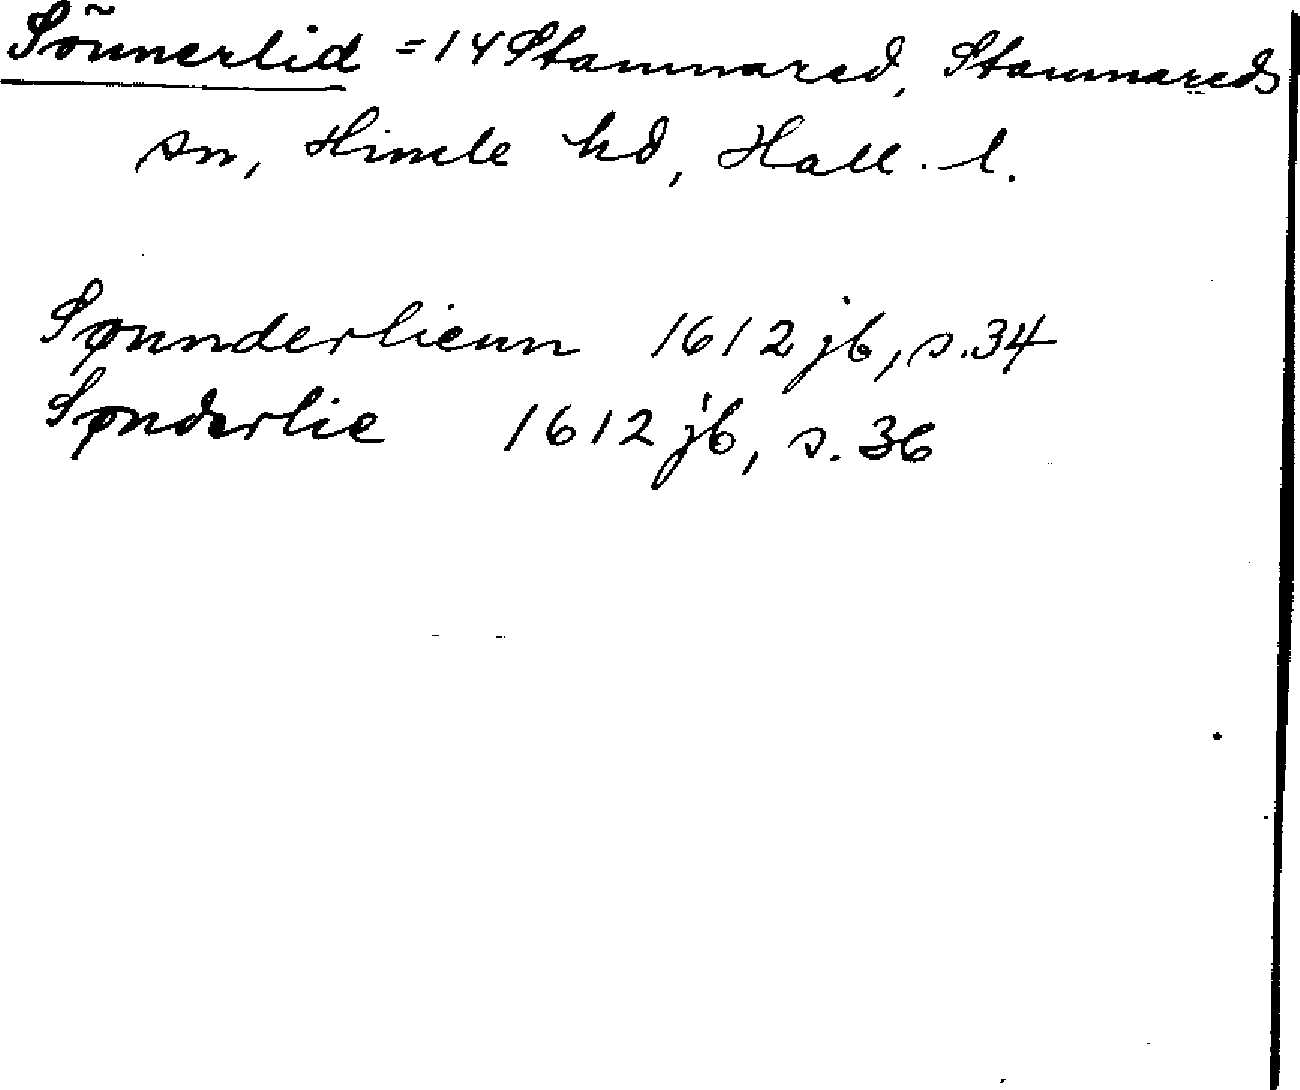 Sönnerlid = 14 Stamnared, Stamnareds
sn, Himle hd, Hall. l.
Sønnderlienn 1612 jb, s. 34
Sønderlie 1612 jb, s. 36